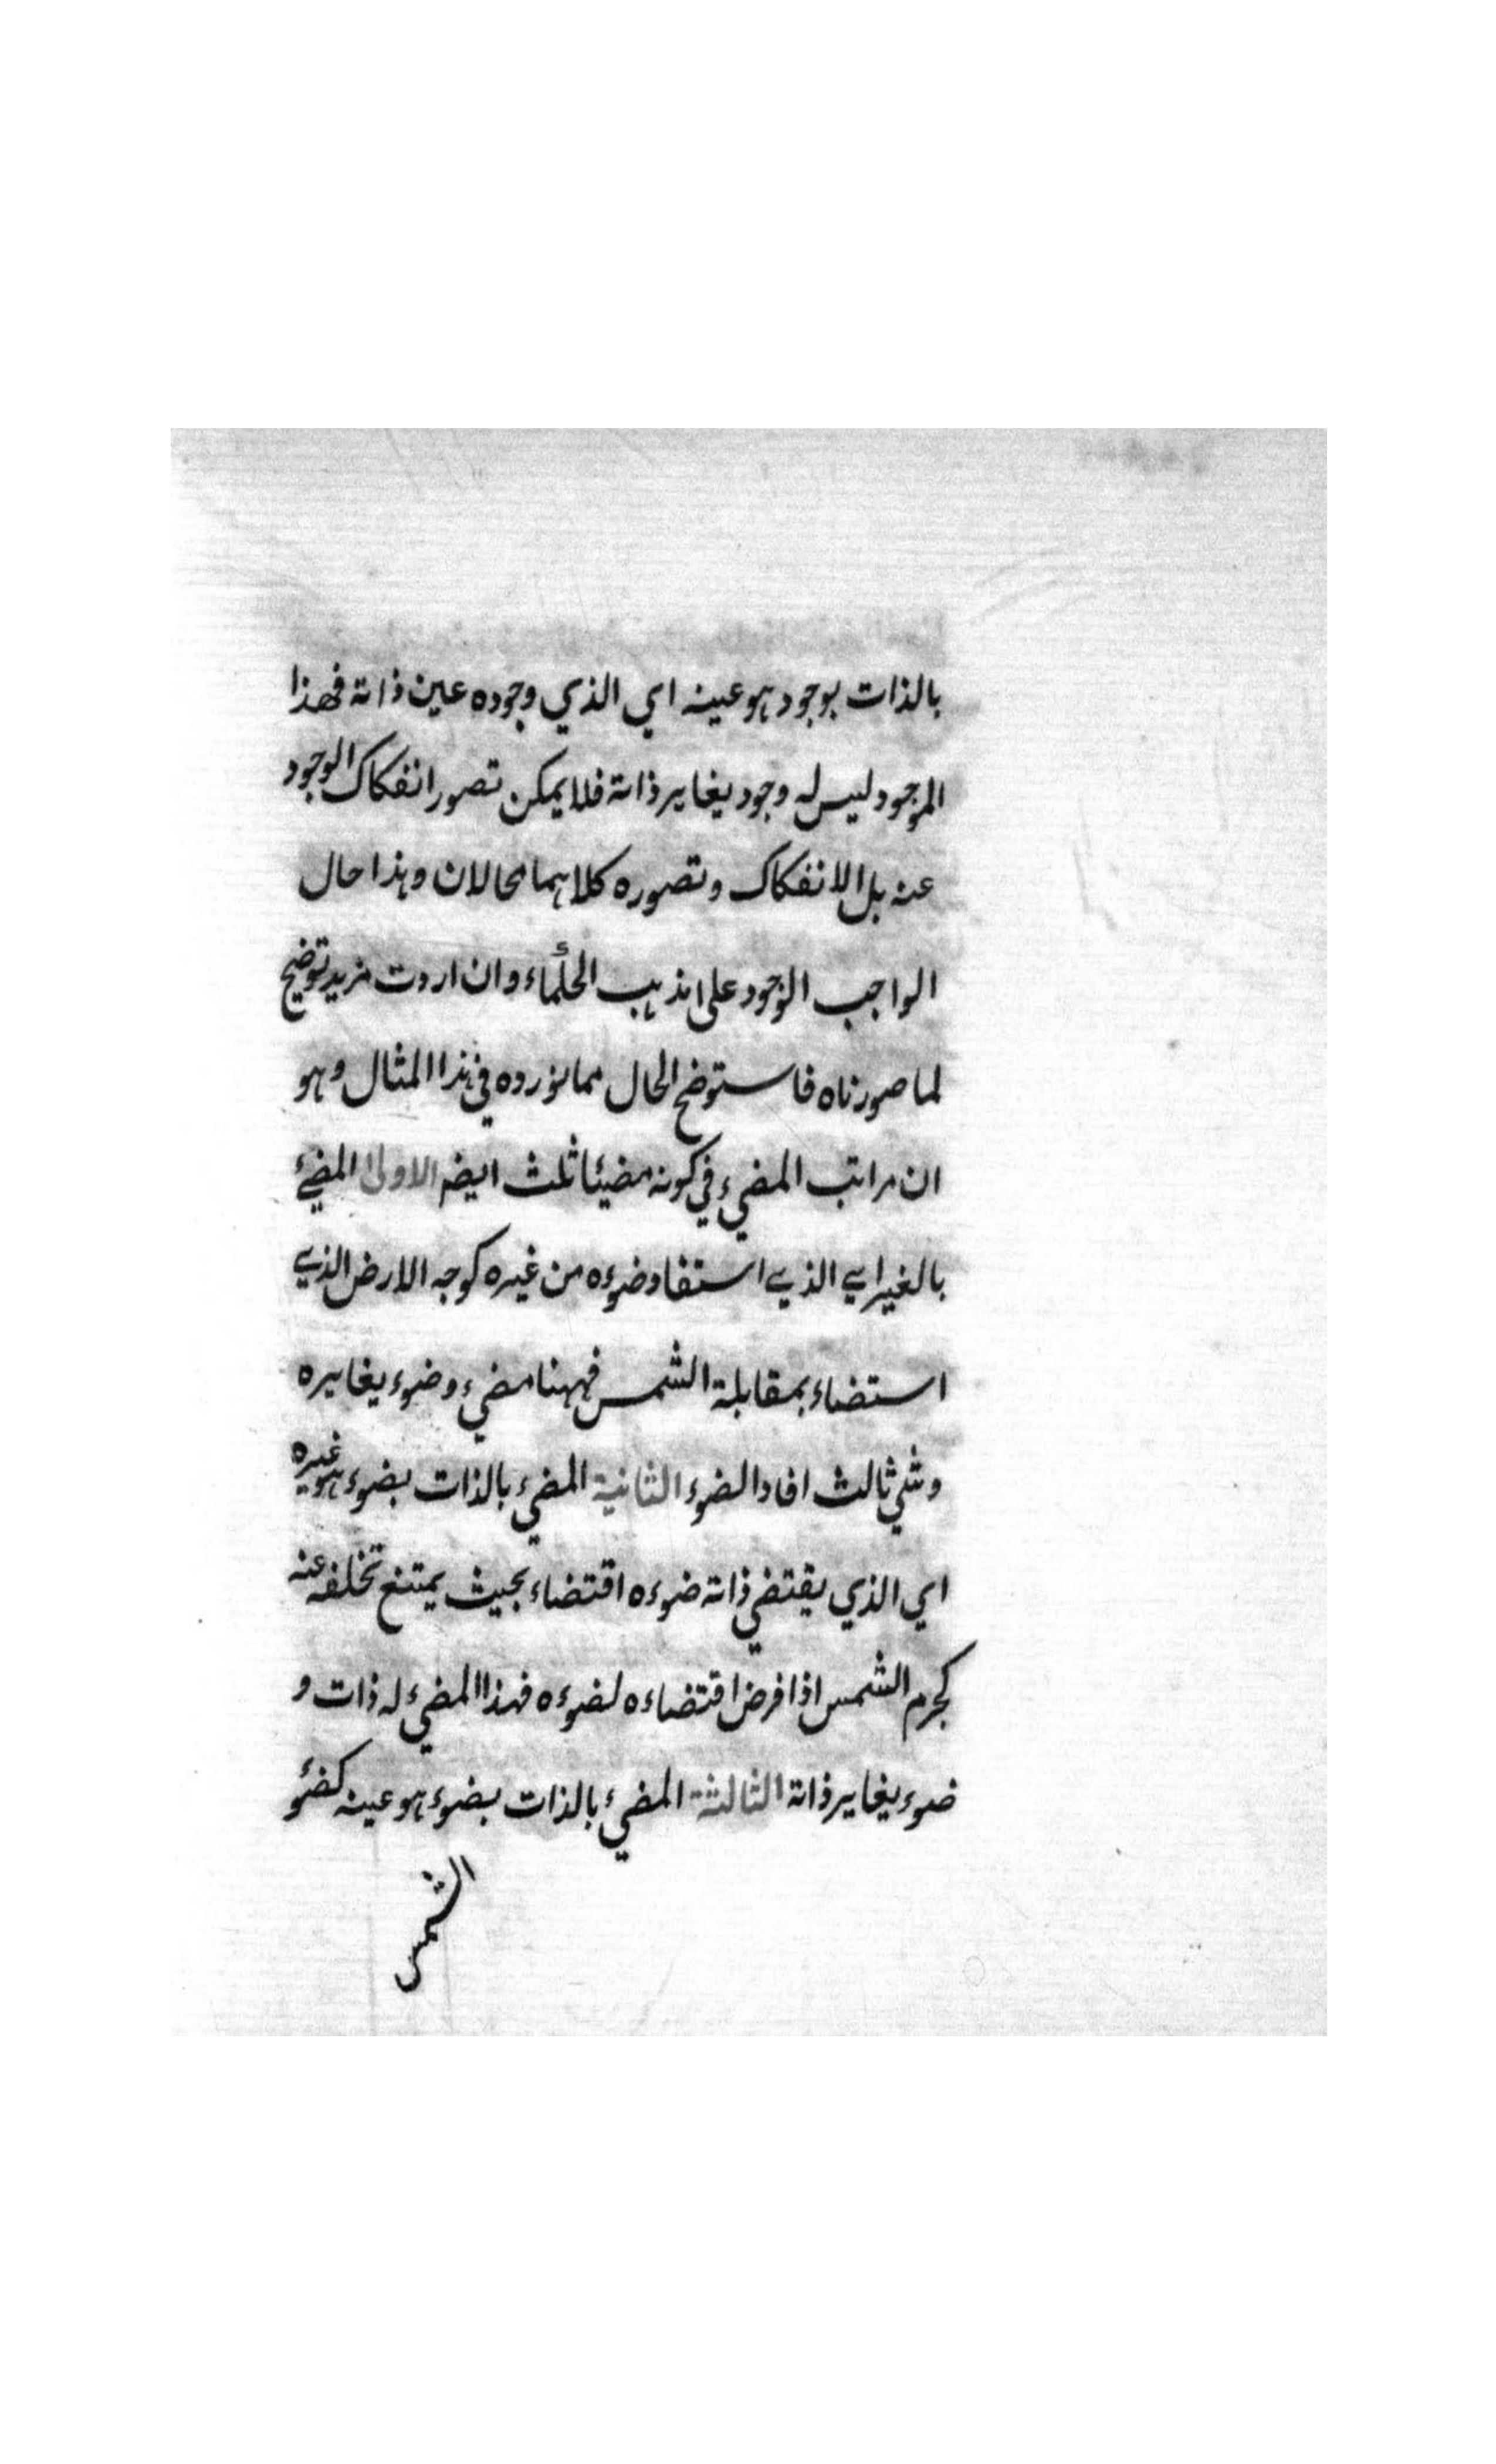 بالذات بوجود هو عينه اي الذي وجوده عين ذاته فهذا
الموجود ليس له وجود يغاير ذاته فلا يمكن تصور انفكاك الوجود
عنه بل الانفكاك وتصوره كلاهما محالان وهذا حال
الواجب الوجود على مذهب الحكماء وان اردت مزيد توضيح
لما صورناه فاستوضح الحال مما نورده في هذا المثال وهو
ان مراتب المضيء في كونه مضيئا ثلث ايضا الاولى المضيء
بالغير اي الذي استفاد ضوءه من غيره كوجه الارض الذي
استضاء بمقابلة الشمس فههنا مضيء وضوء يغايره
وشي ثالث افاد الضوء الثانية المضيء بالذات بضوء هو غيره
اي الذي يقتضي ذاته ضوءه اقتضاء بحيث يمتنع تخلفه عنه
كجرم الشمس اذا فرض اقتضاءه لضوءه فهذا المضيء له ذات و
ضوء يغاير ذاته الثالثة المضيء بالذات بضوء هو عينه كضوء
الشمس